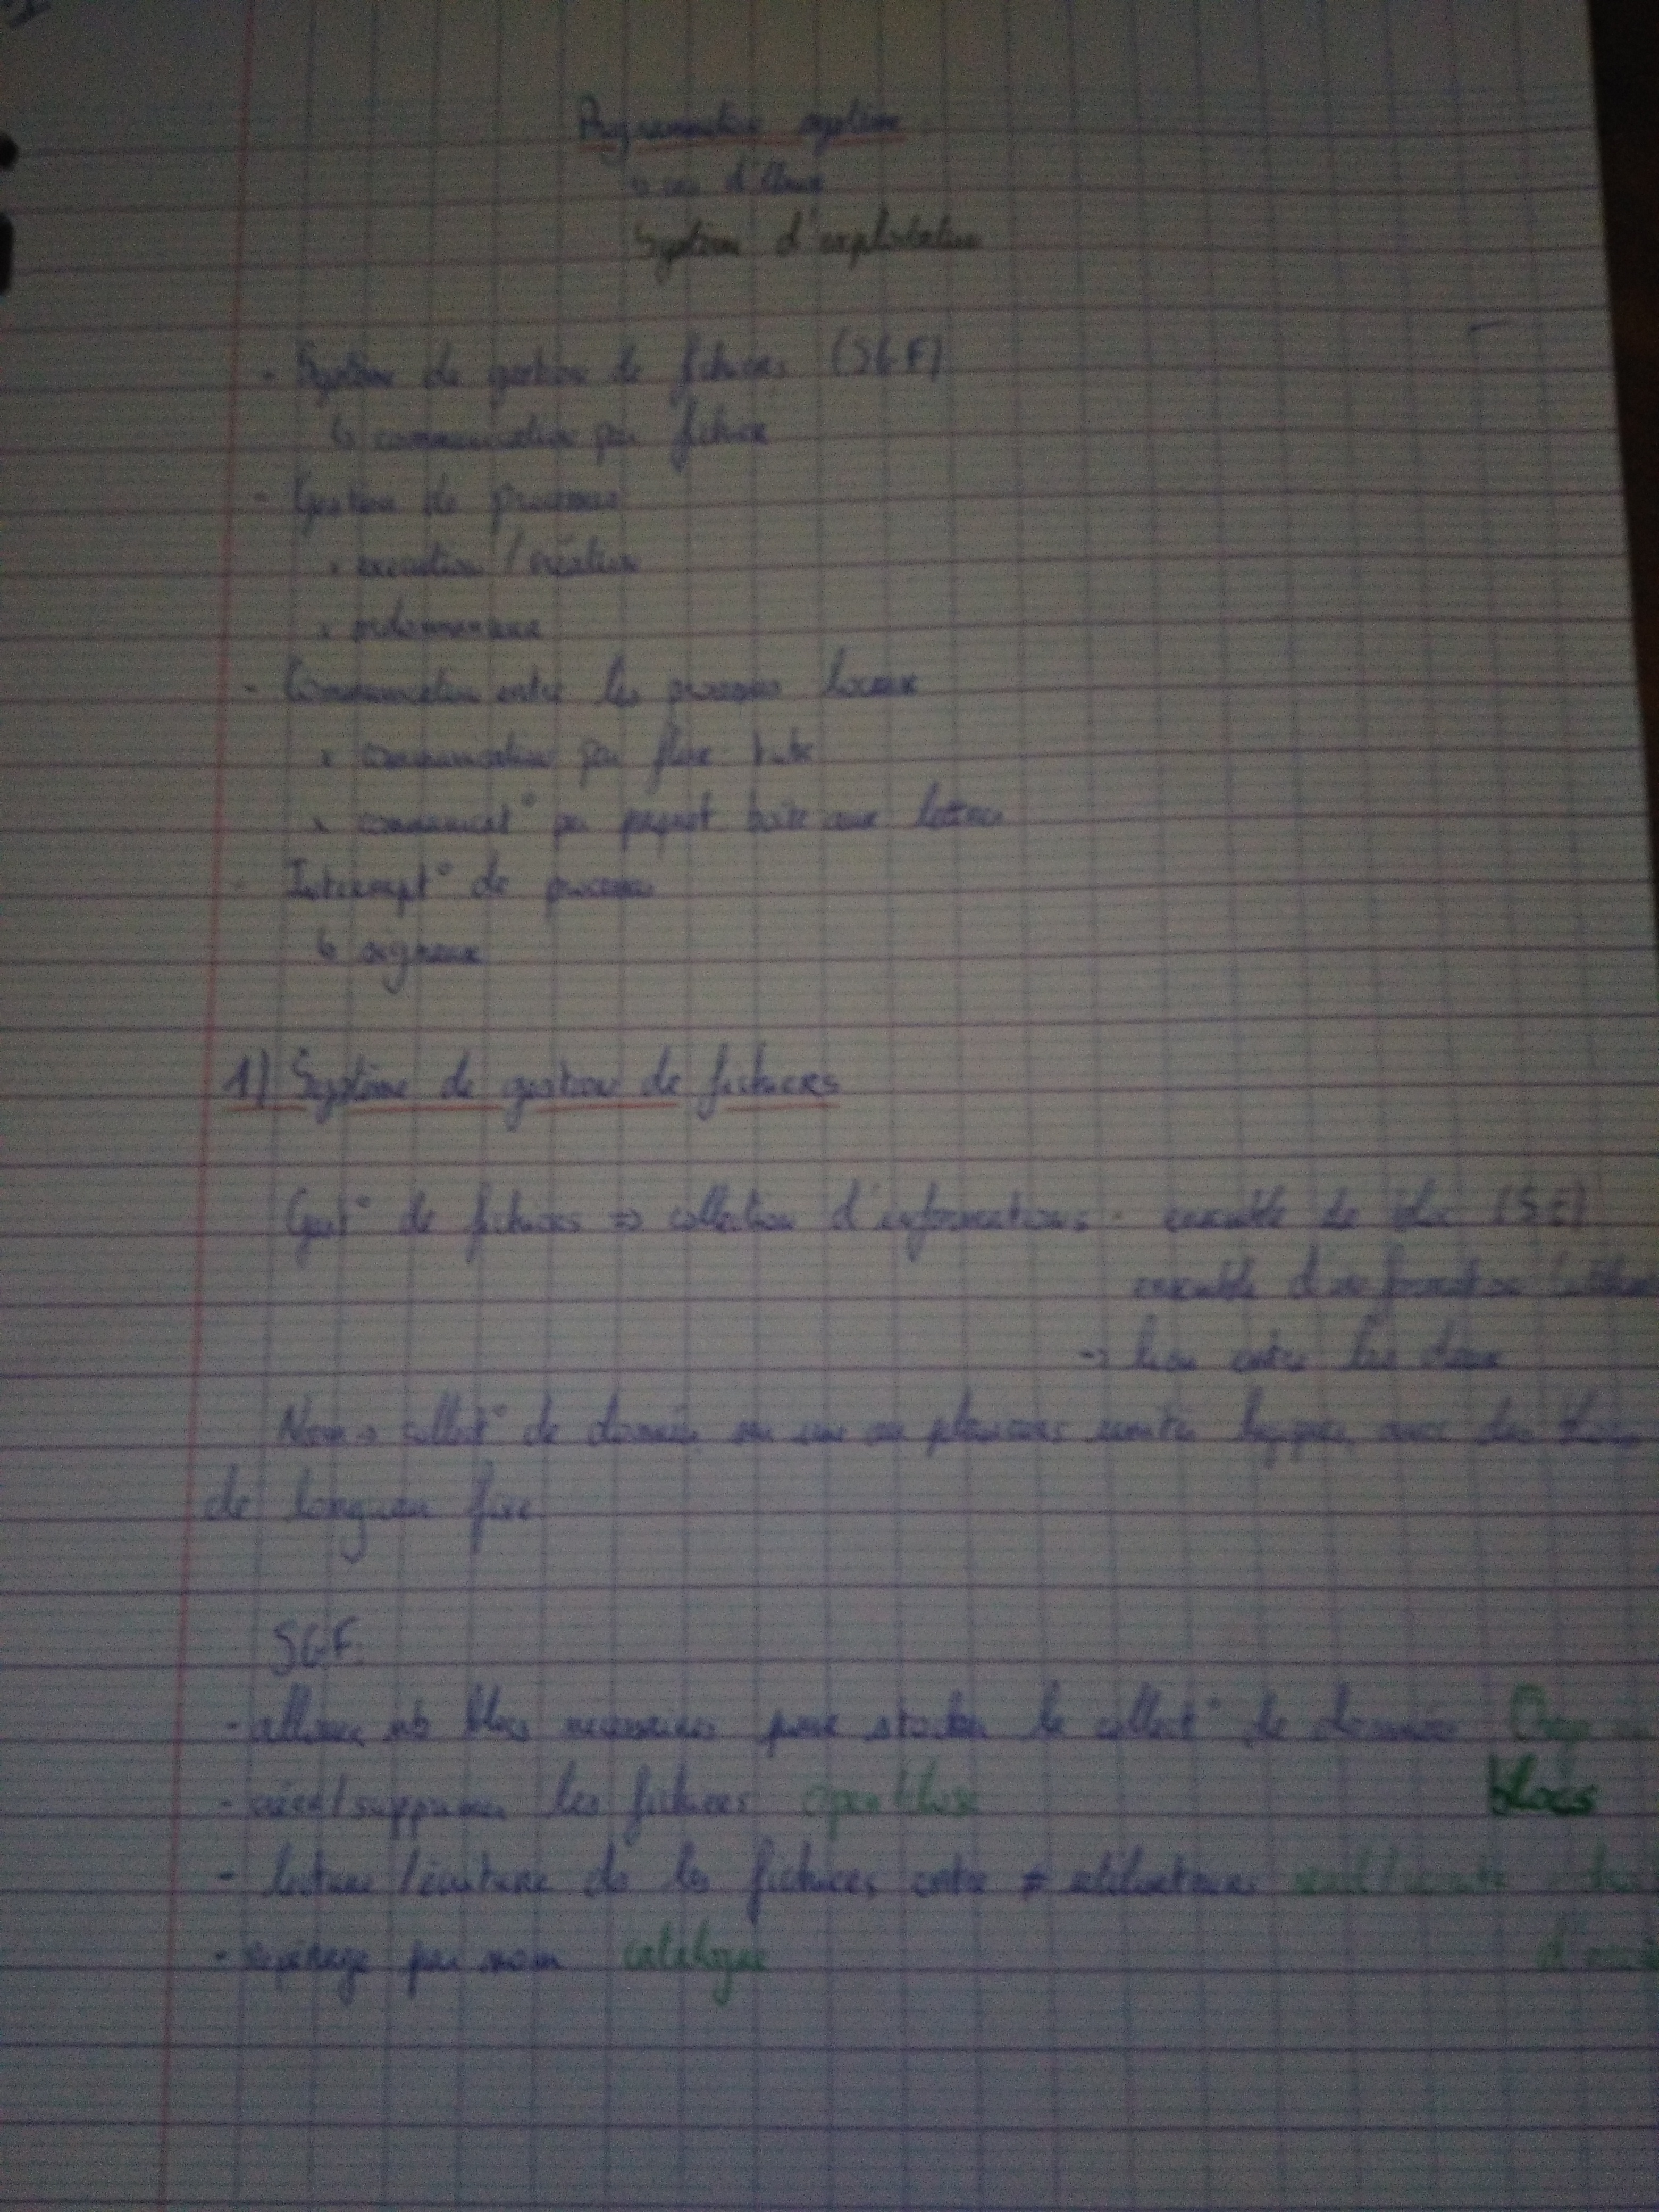 Programmation système
d'Unix
Système d'exploitation
- Système de gestion de fichiers (SGF)
↳ communication par fichier
- Gestion de processus
• execution / création
• ordonnanceur
- Communication entre les processus locaux
• communication par flux tube
• communicat° par paquet boîte aux lettres
- Interrupt° de processus
↳ signaux
1) Système de gestion de fichiers
Gest° de fichiers => collection d'informations - ensemble de bloc (SE)
ensemble d'information
-> lien entre les deux
collect° de données sur une ou plusieurs unités logiques avec des blocs
de longueur fixe
SGF
- alloue nb blocs necessaires pour stocker la collect° de données
- créer/supprimer les fichiers open/close blocs
- lecture/écriture ds les fichiers entre ≠ utilisateurs
- repérage par nom catalogue